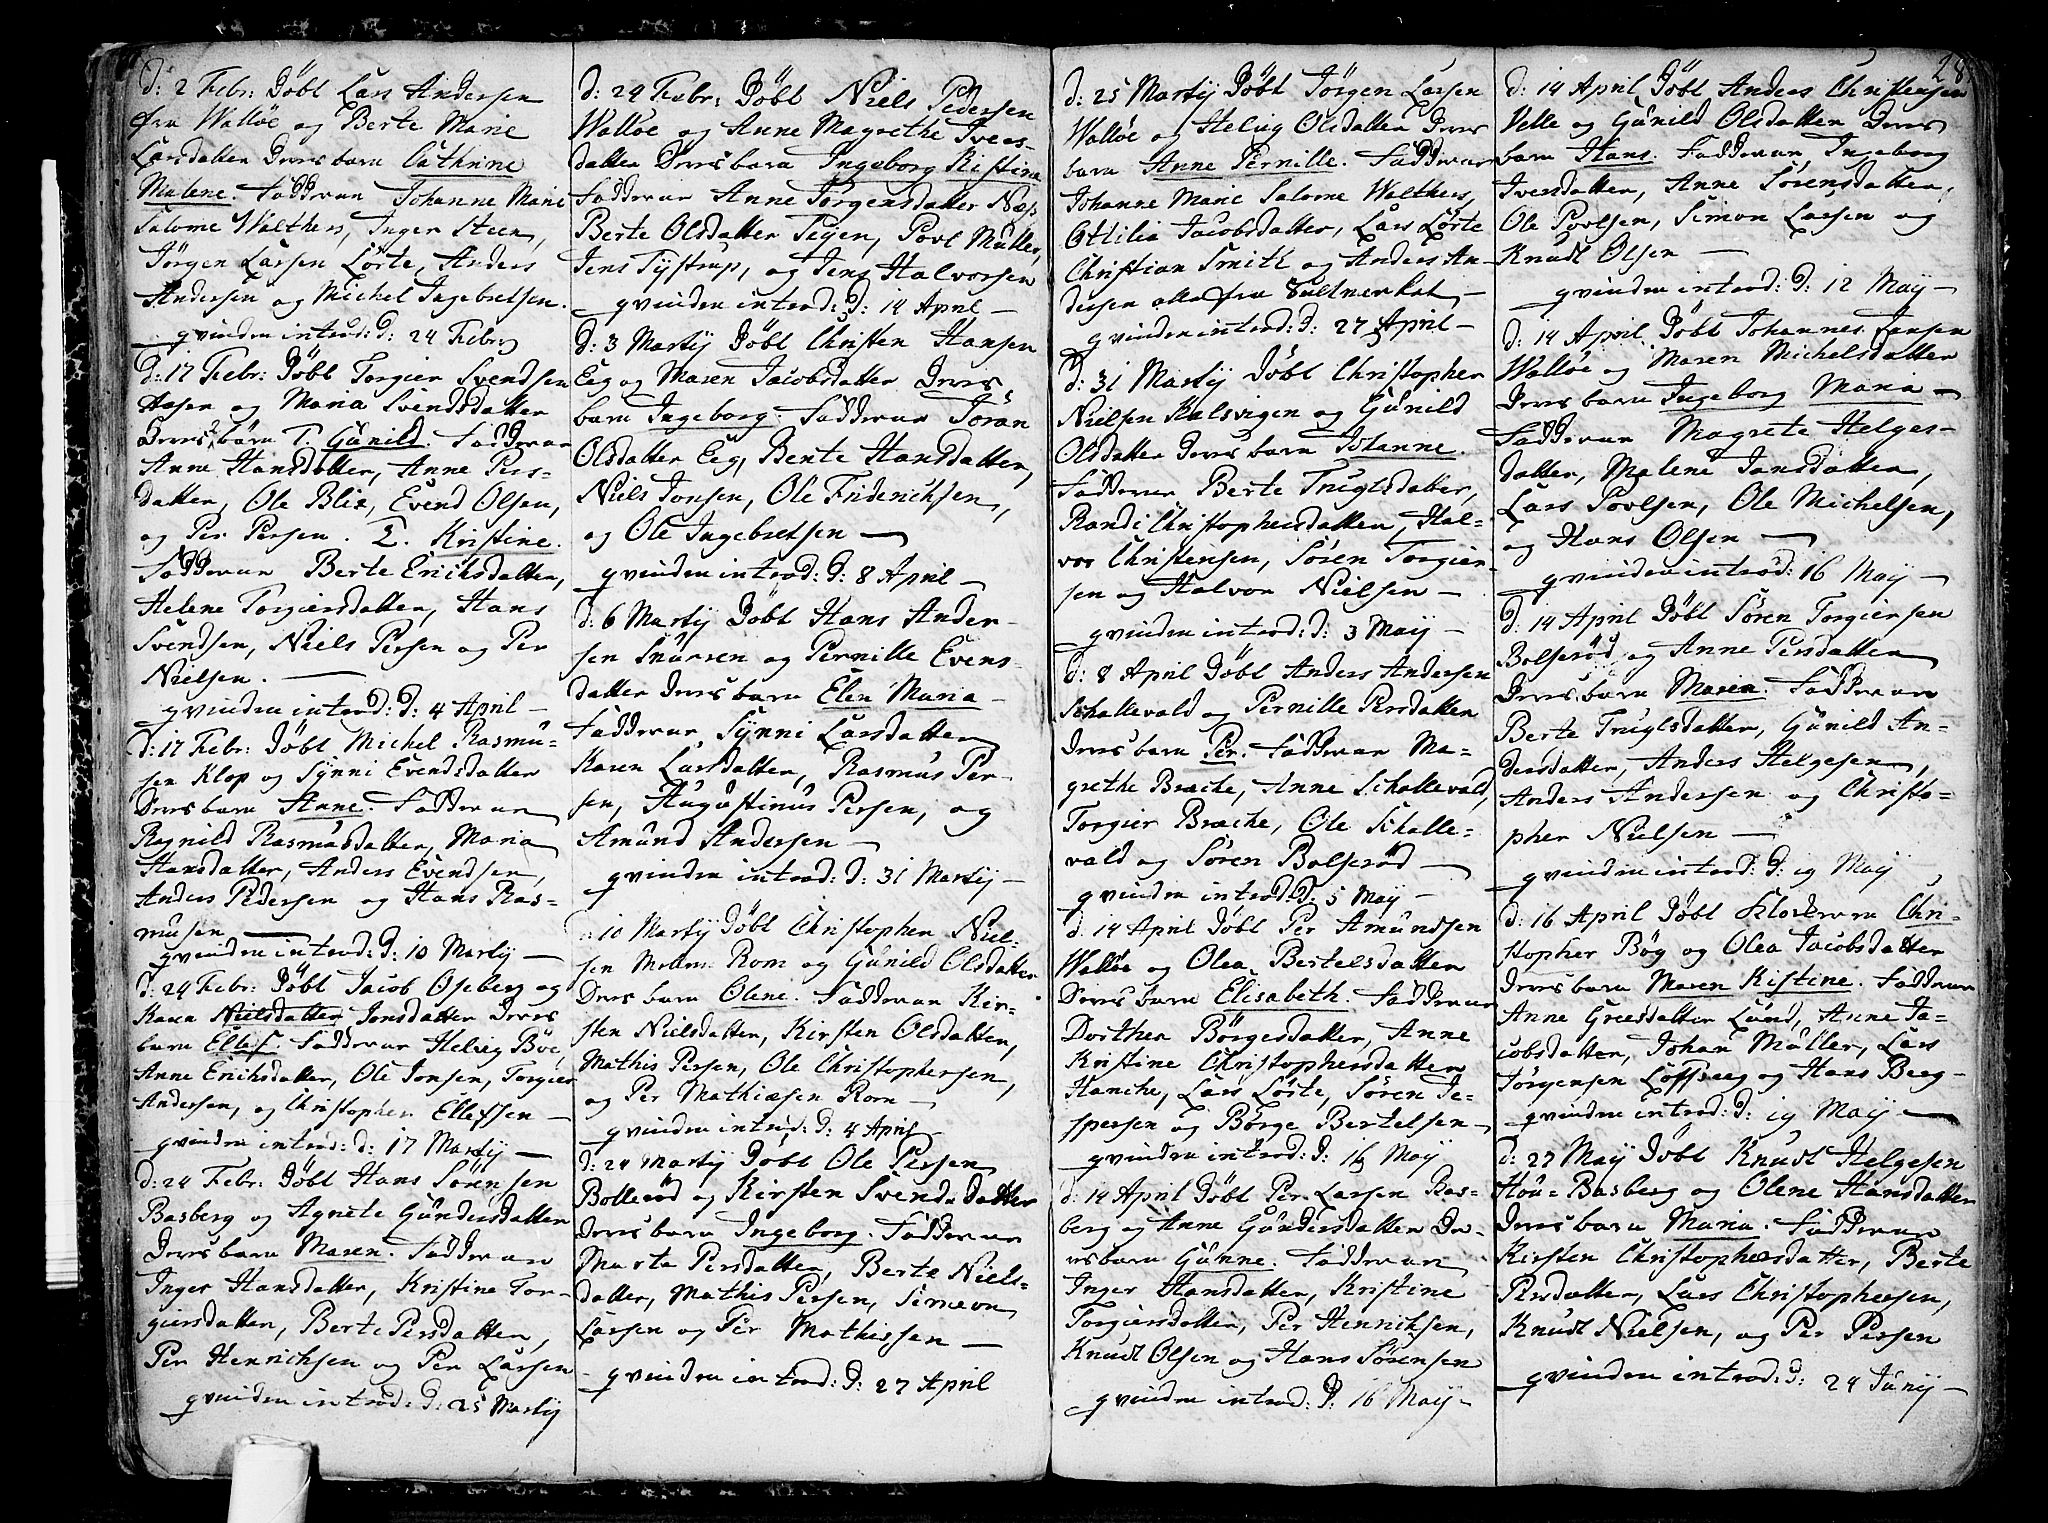 d: 2 Febr: Döbt Lars Andersen
fra Walløe og Berte Marie
Larsdatter Deres barn Cathrine
Malene. Fadderne Johanne Marie
Salome Walthers, Inger Steen,
Jörgen Larsen Lörte, Anders
Andersen og Michel Ingebretsen.
qvinden introd: d: 24 Febr
d: 17 Febr: Döbt Torgier Svendsen
Aasen og Maria Svendsdatter
Deres 2 börn 1. Gunild. Fadderne
Anne Hansdatter, Anne Pers-
datter, Ole Blix, Evend Olsen,
og Per Persen. 2. Kristine.
Fadderne Berte Erichsdatter,
Helene Torgiersdatter, Hans
Svendsen, Niels Persen og Per
Nielsen. —
qvinden introd: d: 4 April —
d: 17 Febr: Döbt Michel Rasmu-
sen Klop og Synni Evendsdatter
Deres barn Anne. Fadderne
Ragnild Rasmusdatter, Maria
Hansdatter, Anders Evendsen,
Anders Pedersen og Hans Ras-
musen —
qvinden introd: d: 10 Martij —
d: 24 Febr: Döbt Jacob Oseberg og
Karen Nielsdatter Jonsdatter Deres
barn Ellef. Fadderne Helvig Böe,
Anne Erichsdatter, Ole Jonsen, Torgier
Andersen, og Christopher Ellefsen —
qvinden introd: d: 17 Martij —
d: 24 Febr: Döbt Hans Sörensen
Basberg og Agnete Gundersdatter
Deres barn Maren. Fadderne
Inger Hansdatter, Kristine Tor-
giersdatter, Berte Persdatter,
Per Henrichsen og Per Larsen
qvinden introd: d: 25 Martij
d: 24 Febr: Döbt Niels Pedersen
Walløe og Anne Magrethe Ivers-
datter Deres barn Ingeborg Kistina
Fadderne Anne Jörgensdatter Næss
Berte Olsdatter Teijen, Povl Muller,
Jens Tystrup, og Jens Halvorsen
qvinden introd: d: 14 April —
d: 3 Martij Döbt Christen Hansen
Eeg og Maren Jacobsdatter Deres
barn Ingeborg. Fadderne Jöran
Olsdatter Eeg, Berte Hansdatter,
Niels Jonsen, Ole Friderichsen,
og Ole Ingebretsen —
qvinden introd: d: 8 April —
d: 6 Martij Döbt Hans Ander-
sen Snarsen og Pernille Evens-
datter Deres barn Elen Maria —
Fadderne Synni Larsdatter
Karen Larsdatter, Rasmus Per-
sen, Augustinus Persen, og
Amund Andersen —
qvinden introd: d: 31 Martij —
10 Martij Döbt Christopher Niel-
sen Mellem Rom og Gunild Olsdatter
Deres barn Olene. Fadderne Kir-
sten Nielsdatter, Kirsten Olsdatter,
Mathis Persen, Ole Christophersen,
og Per Mathiæsen Rom —
qvinden introd: d: 4 April —
d: 24 Martij Döbt Ole Persen
Bollerød og Kirsten Svendsdatter
Deres barn Ingeborg. Fadderne
Marta Persdatter, Berte Niels-
datter, Mathis Persen, Simeon
Larsen og Per Mathissen —
qvinden introd: d: 27 April
28
d: 25 Martij Döbt Jörgen Larsen
Walløe og Helvig Olsdatter Deres
barn Anne Pernille. Fadderne
Johanne Marie Salome Walthers,
Ottilia Jacobsdatter, Lars Lörte
Christian Smith og Anders An-
dersen alle fra Saltverket —
qvinden introd: d: 27 April —
d: 31 Martij Döbt Christopher
Nielsen Kalsvigen og Gunild
Olsdatter Deres barn Johanne.
Fadderne Berte Truglsdatter,
Randi Christophersdatter, Hal-
vor Christensen, Sören Torgier-
sen og Halvor Nielsen —
qvinden introd: d: 3 Maij —
d: 8 April Döbt Anders Andersen
Schallevald og Pernille Persdatter
Deres barn Per. Fadderne Ma-
grethe Brache, Anne Schallevald,
Torgier Brache, Ole Schalle-
vald og Sören Bolserød —
qvinden introd: d: 5 Maij —
d: 14 April Döbt Per Amundsen
Walløe og Olea Bertelsdatter
Deres barn Elisabeth. Fadderne
Dorthea Börgesdatter, Anne
Kristine Christophersdatter
Hanche, Lars Lörte, Sören Je-
spersen og Börge Bertelsen —
qvinden introd: d: 16 Maij
d: 14 April Döbt Per Larsen Bas-
berg og Anne Gundersdatter De-
res barn Gunne. Fadderne
Inger Hansdatter, Kristine
Torgiersdatter, Per Henrichsen,
Knudt Olsen og Hans Sörensen
qvinden introd: d: 16 Maij —
d: 14 April Döbt Anders Christensen
Velle og Gunild Olsdatter Deres
barn Hans. Fadderne Ingeborg
Iversdatter, Anne Sörensdatter,
Ole Povlsen, Simon Larsen og
Knudt Olsen —
qvinden introd: d: 12 Maij —
d: 14 April Döbt Johannes Jansen
Walløe og Maren Michelsdatter
Deres barn Ingeborg Maria —
Fadderne Magrete Helges-
datter, Malene Jansdatter,
Lars Povlsen, Ole Michelsen,
og Hans Olsen —
qvinden introd: 16 Maij —
d: 14 April Döbt Sören Torgiersen
Bolserød og Anne Persdatter
Deres barn Maren. Fadderne
Berte Truglsdatter, Gunild An-
dersdatter, Anders Helgesen,
Anders Andersen og Christo-
pher Nielsen —
qvinden introd: d: 19 Maij
d: 16 April Döbt Klockeren Chri-
stopher Bög og Olea Jacobsdatter
Deres barn Maren Kistine. Fadderne
Anne Greersdatter Lund, Anne Ja-
cobsdatter, Johan Muller, Lars
Jörgensen Löffseeg og Hans Berg —
qvinden introd: d: 19 Maij —
d: 27 Maij Döbt Knudt Helgesen
Hou-Basberg og Olene Hansdatter
Deres barn Maria. Fadderne
Kirsten Christophersdatter, Berte
Persdatter, Lars Christophersen,
Knudt Nielsen, og Per Persen
qvinden introd: d: 24 Junij —